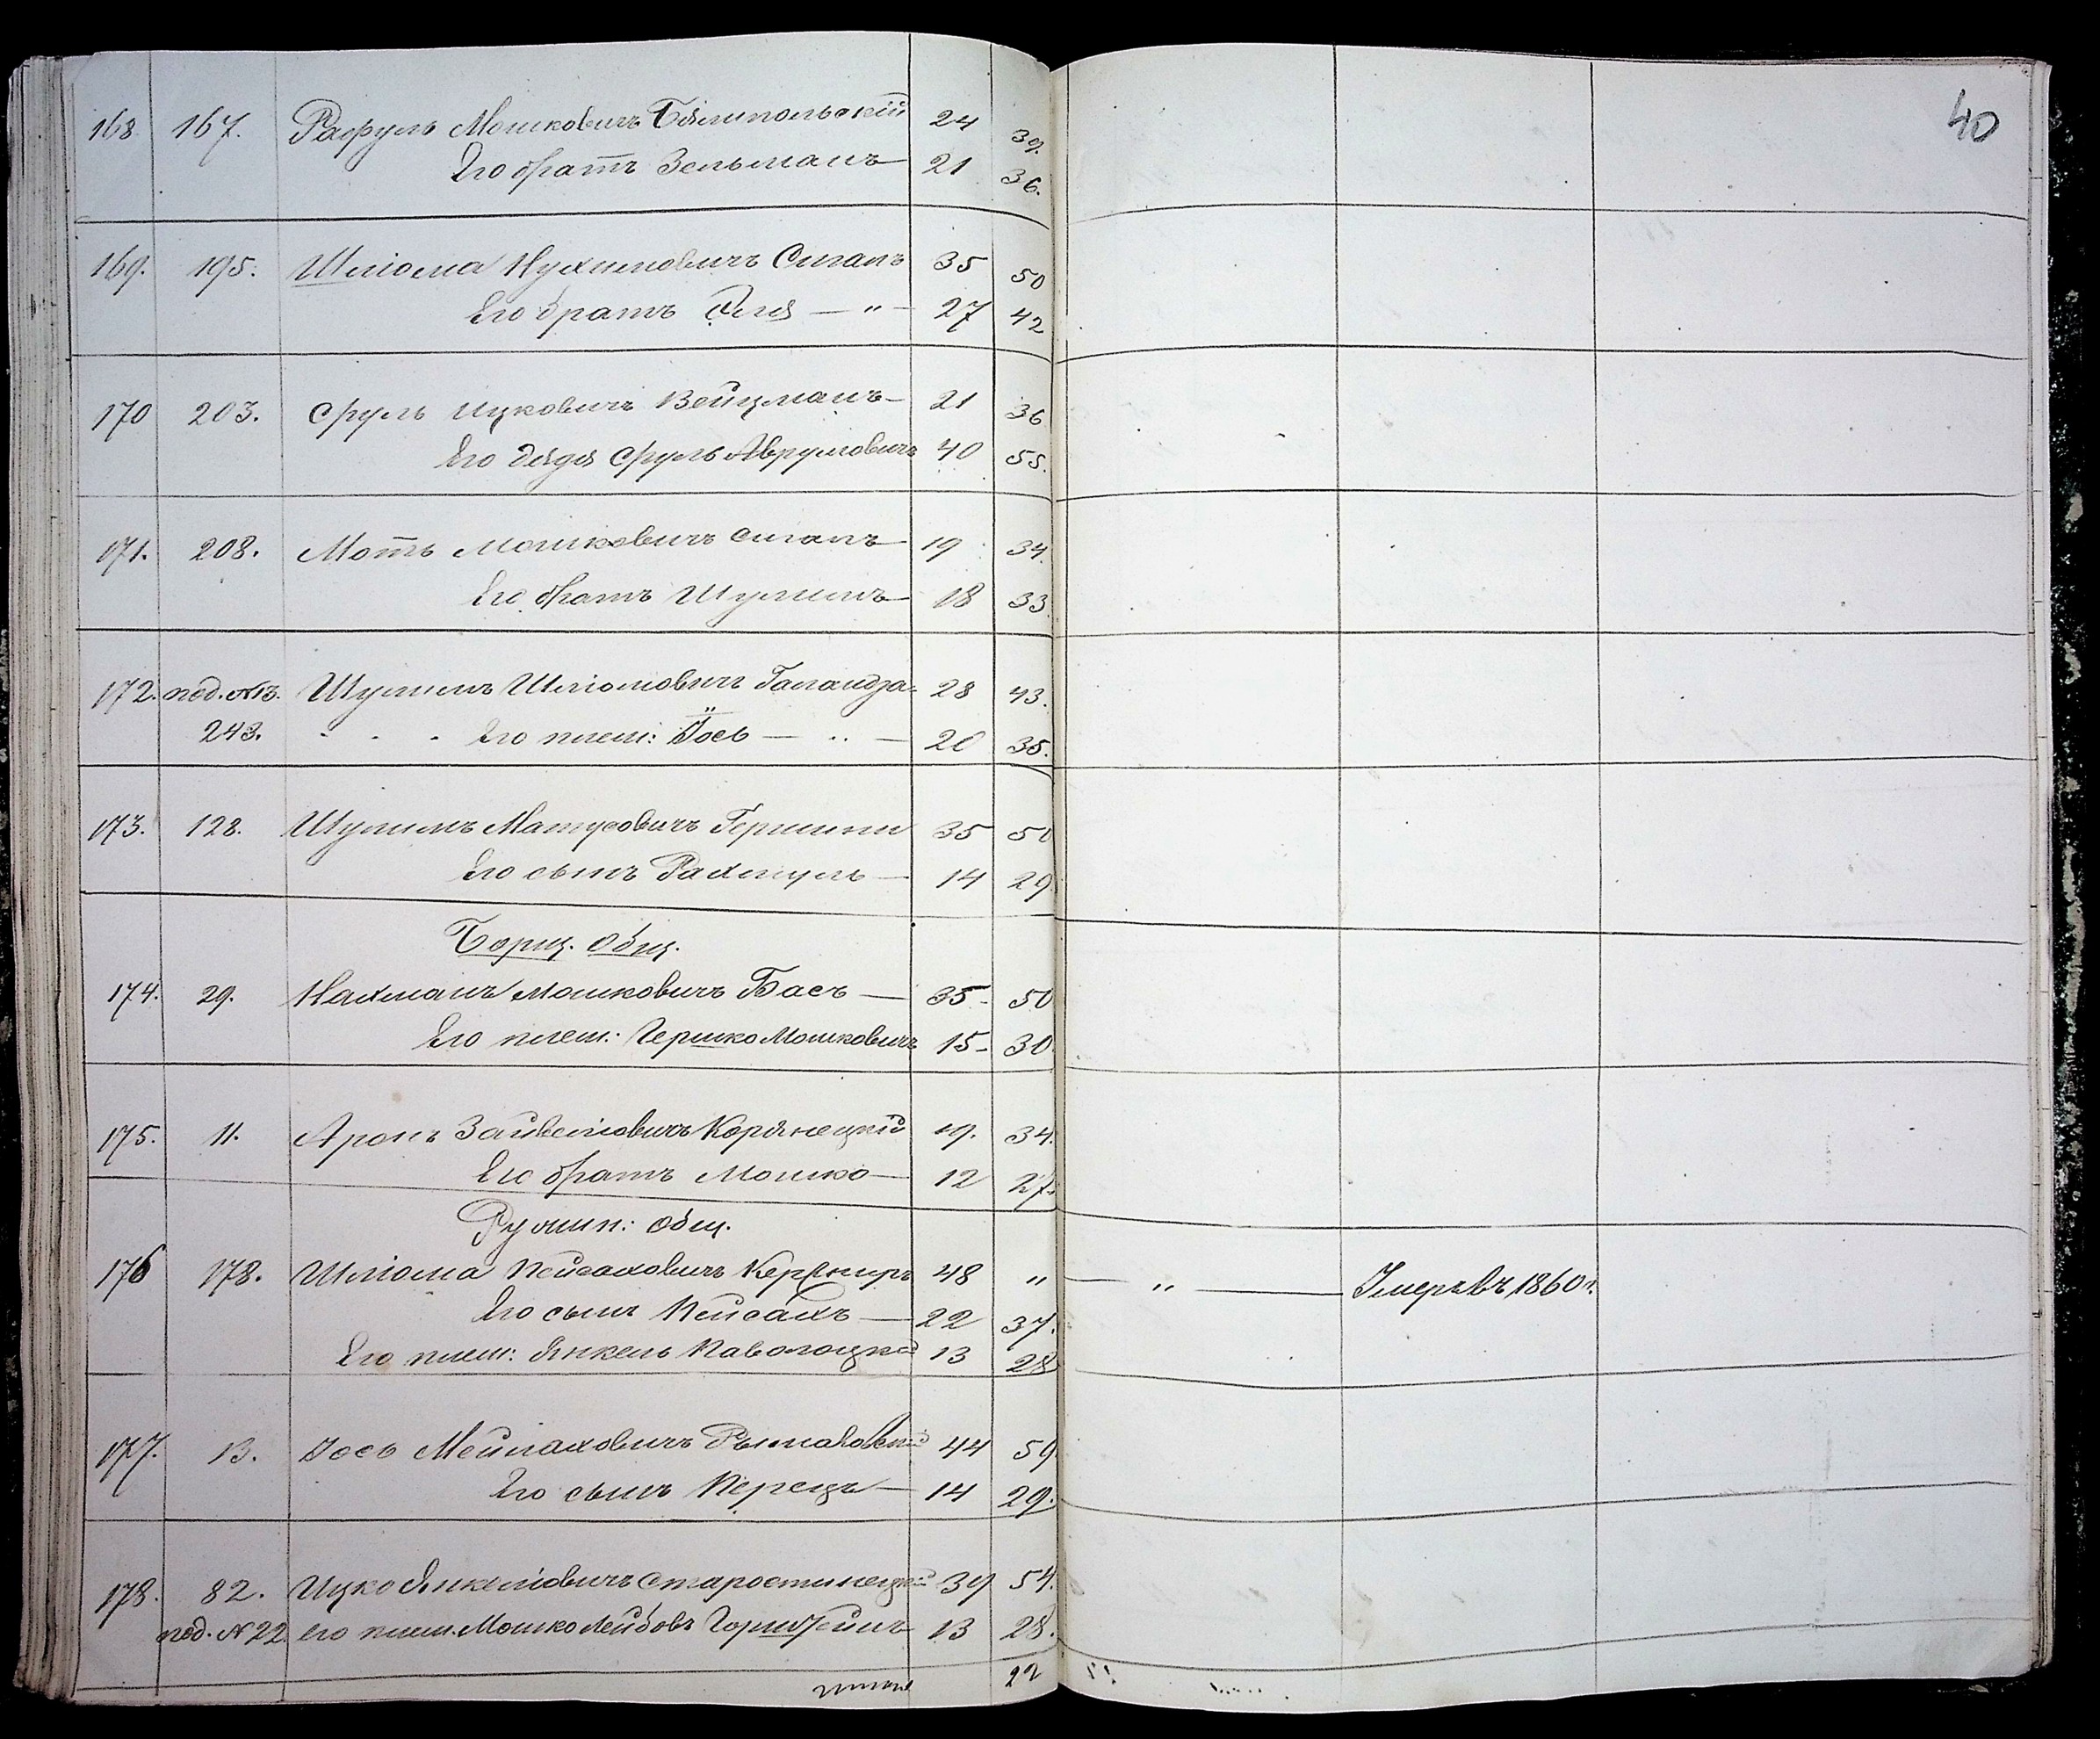 40
168. 167. Расруль Мошковичъ Бѣлипольскій 24 39.
Его братъ Зельманъ — 21 36.
169. 195. Шліома Нухимовичъ Сигалъ 35 50
Его братъ Эля — " — 27 42
170 203. Сруль Ицковичъ Вейцманъ — 21 36
Его дядя Сруль Аврумовичъ 40 55.
171. 208. Моть Мошковичъ Сигалъ — 19 34.
Его братъ Шулимъ — 18 33
172. под. № 13. Шулимъ Шліомовичъ Галандза 28 43.
243. Его плем: Іось — " — 20 35.
173. 128. Шулимъ Матусовичъ Гершин 35 50
Его сынъ Рахмуль — 14 29
Борщ. Общ.
174. 29. Нахманъ Мошковичъ Басъ — 35 - 50
Его плем: Гершко Мошковичъ 15 - 30
175. 11. Аронъ Зайвеліовичъ Корянецкій 19. 34.
Его братъ Мошко — 12 27.
Ружин: общ.
176 178. Шліома Пейсаховичъ 48 " — " — Умеръ въ 1860 г.
Его сынъ Пейсахъ — 22 37.
Его плем: Янкель Паволоцкій 13 28
177. 13. Іось Мейлаховичъ 44 59
Его сынъ Перецъ — 14 29.
178. 82. Ицко Янкеліовичъ Старостинецкій 39 54.
под. № 22. его плем. Мошко Лейбовъ 13 28.
22